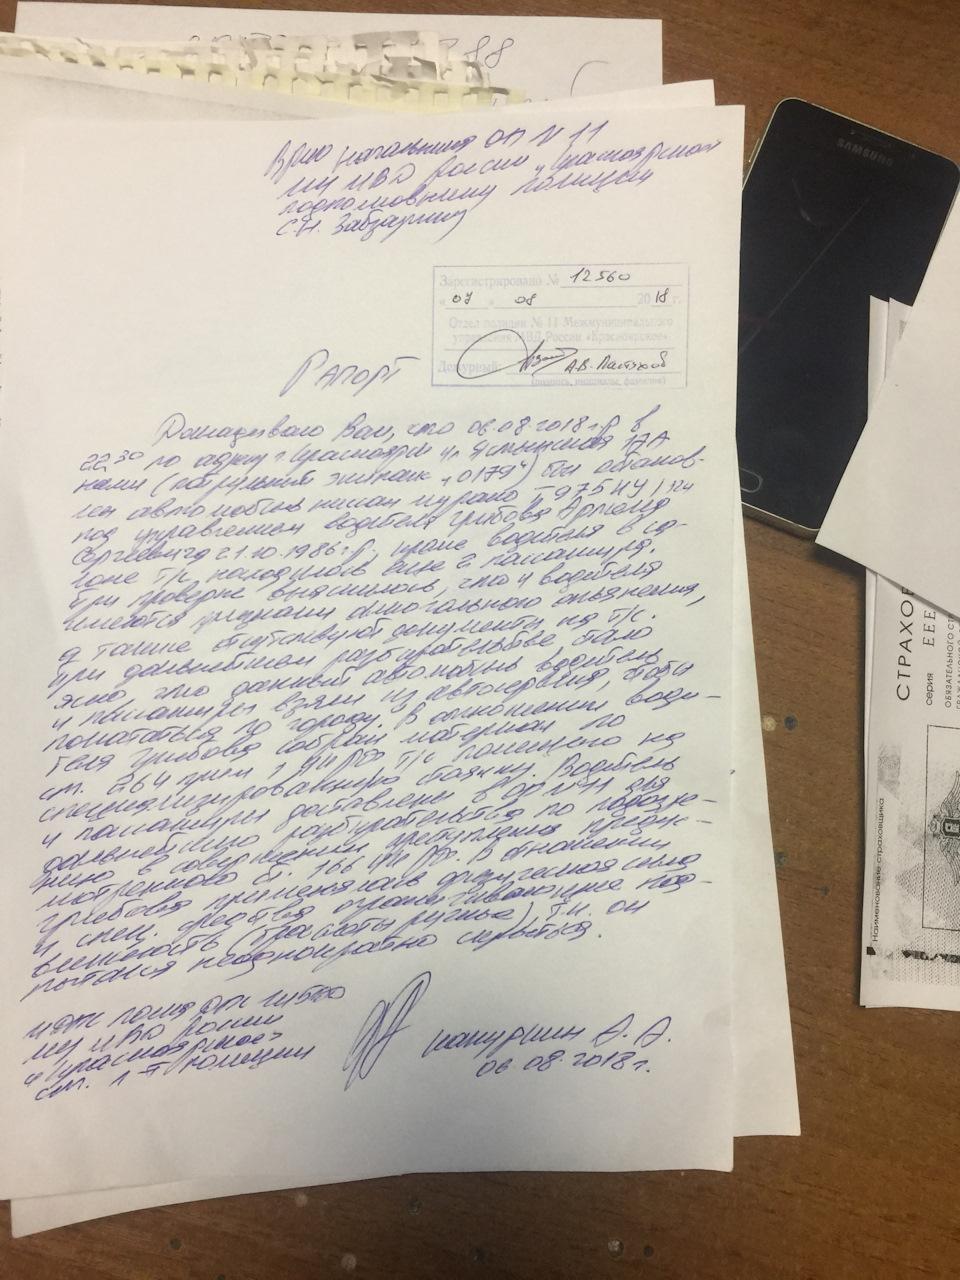 88
Врио начальника ОП N 11
МУ МВД России "Красноярское"
подполковнику полиции
С.Н.
SAMSUNG
Зарегистрировано № 12560
" 07 " 08 2018 г.
Отдел полиции № 11 Межмуниципального
управления МВД России «Красноярское»
Дежурный А.В. Пастухов
(подпись, инициалы, фамилия)
Рапорт
Докладываю Вам, что 06.08.2018 г.р в
22 30 по адресу г. Красноярск ул 17А
нами (патрульный экипаж "0179") был останов-
лен автомобиль нисан мурано 975
под управлением водителя Грибова Артема
Сергеевича 21.10.1986 г.р., кроме водителя в са-
лоне т/с находилось еще 2 пассажира.
При проверке выяснилось, что у водителя
имеются признаки алкогольного опьянения,
а также отсутствуют документы на т/с.
При дальнейшем разбирательстве стало
ясно, что данный автомобиль водитель
и пассажиры взяли из автосервиса, чтобы
покататься по городу. В отношении води-
теля Грибова собран материал по
ст. 264 прим 1 УК РФ т/с помещено на
специализированную стоянку. Водитель
и пассажиры доставлены в ОП N 11 для
дальнейшего разбирательства по подозре-
нию в совершении преступления предус-
мотренного ст. 166 УК РФ. В отношении
Грибова применялась физическая сила
и спец. средства ограничивающие под-
вижность (браслеты ручные), т.к. он
пытался неоднократно скрыться.
МУ МВД России
"Красноярское"
ст. л-т полиции
А. А.
06.08.2018г.
СТРАХОВ
серия ЕЕЕ
ОБЯЗАТЕЛЬНОГО
Наименование страховщика